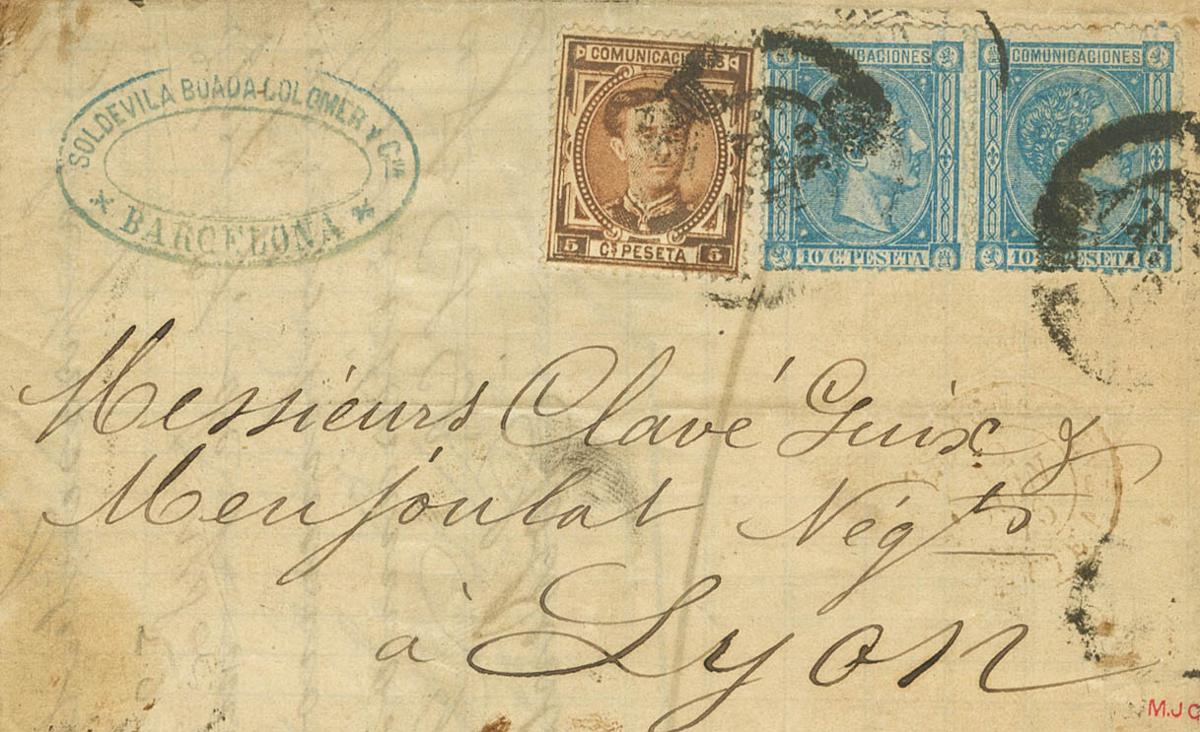 SOLDEVILA BUADA COLOMER Y Cia
BARCELONA
COMUNICACIONES
5 Cs PESETA 5
COMUNICACIONES
10 Cs PESETA
COMUNICACIONES
10 Cs PESETA
Messieurs Clavé Guix &
Menjoulat Négts
à Lyon
M.J